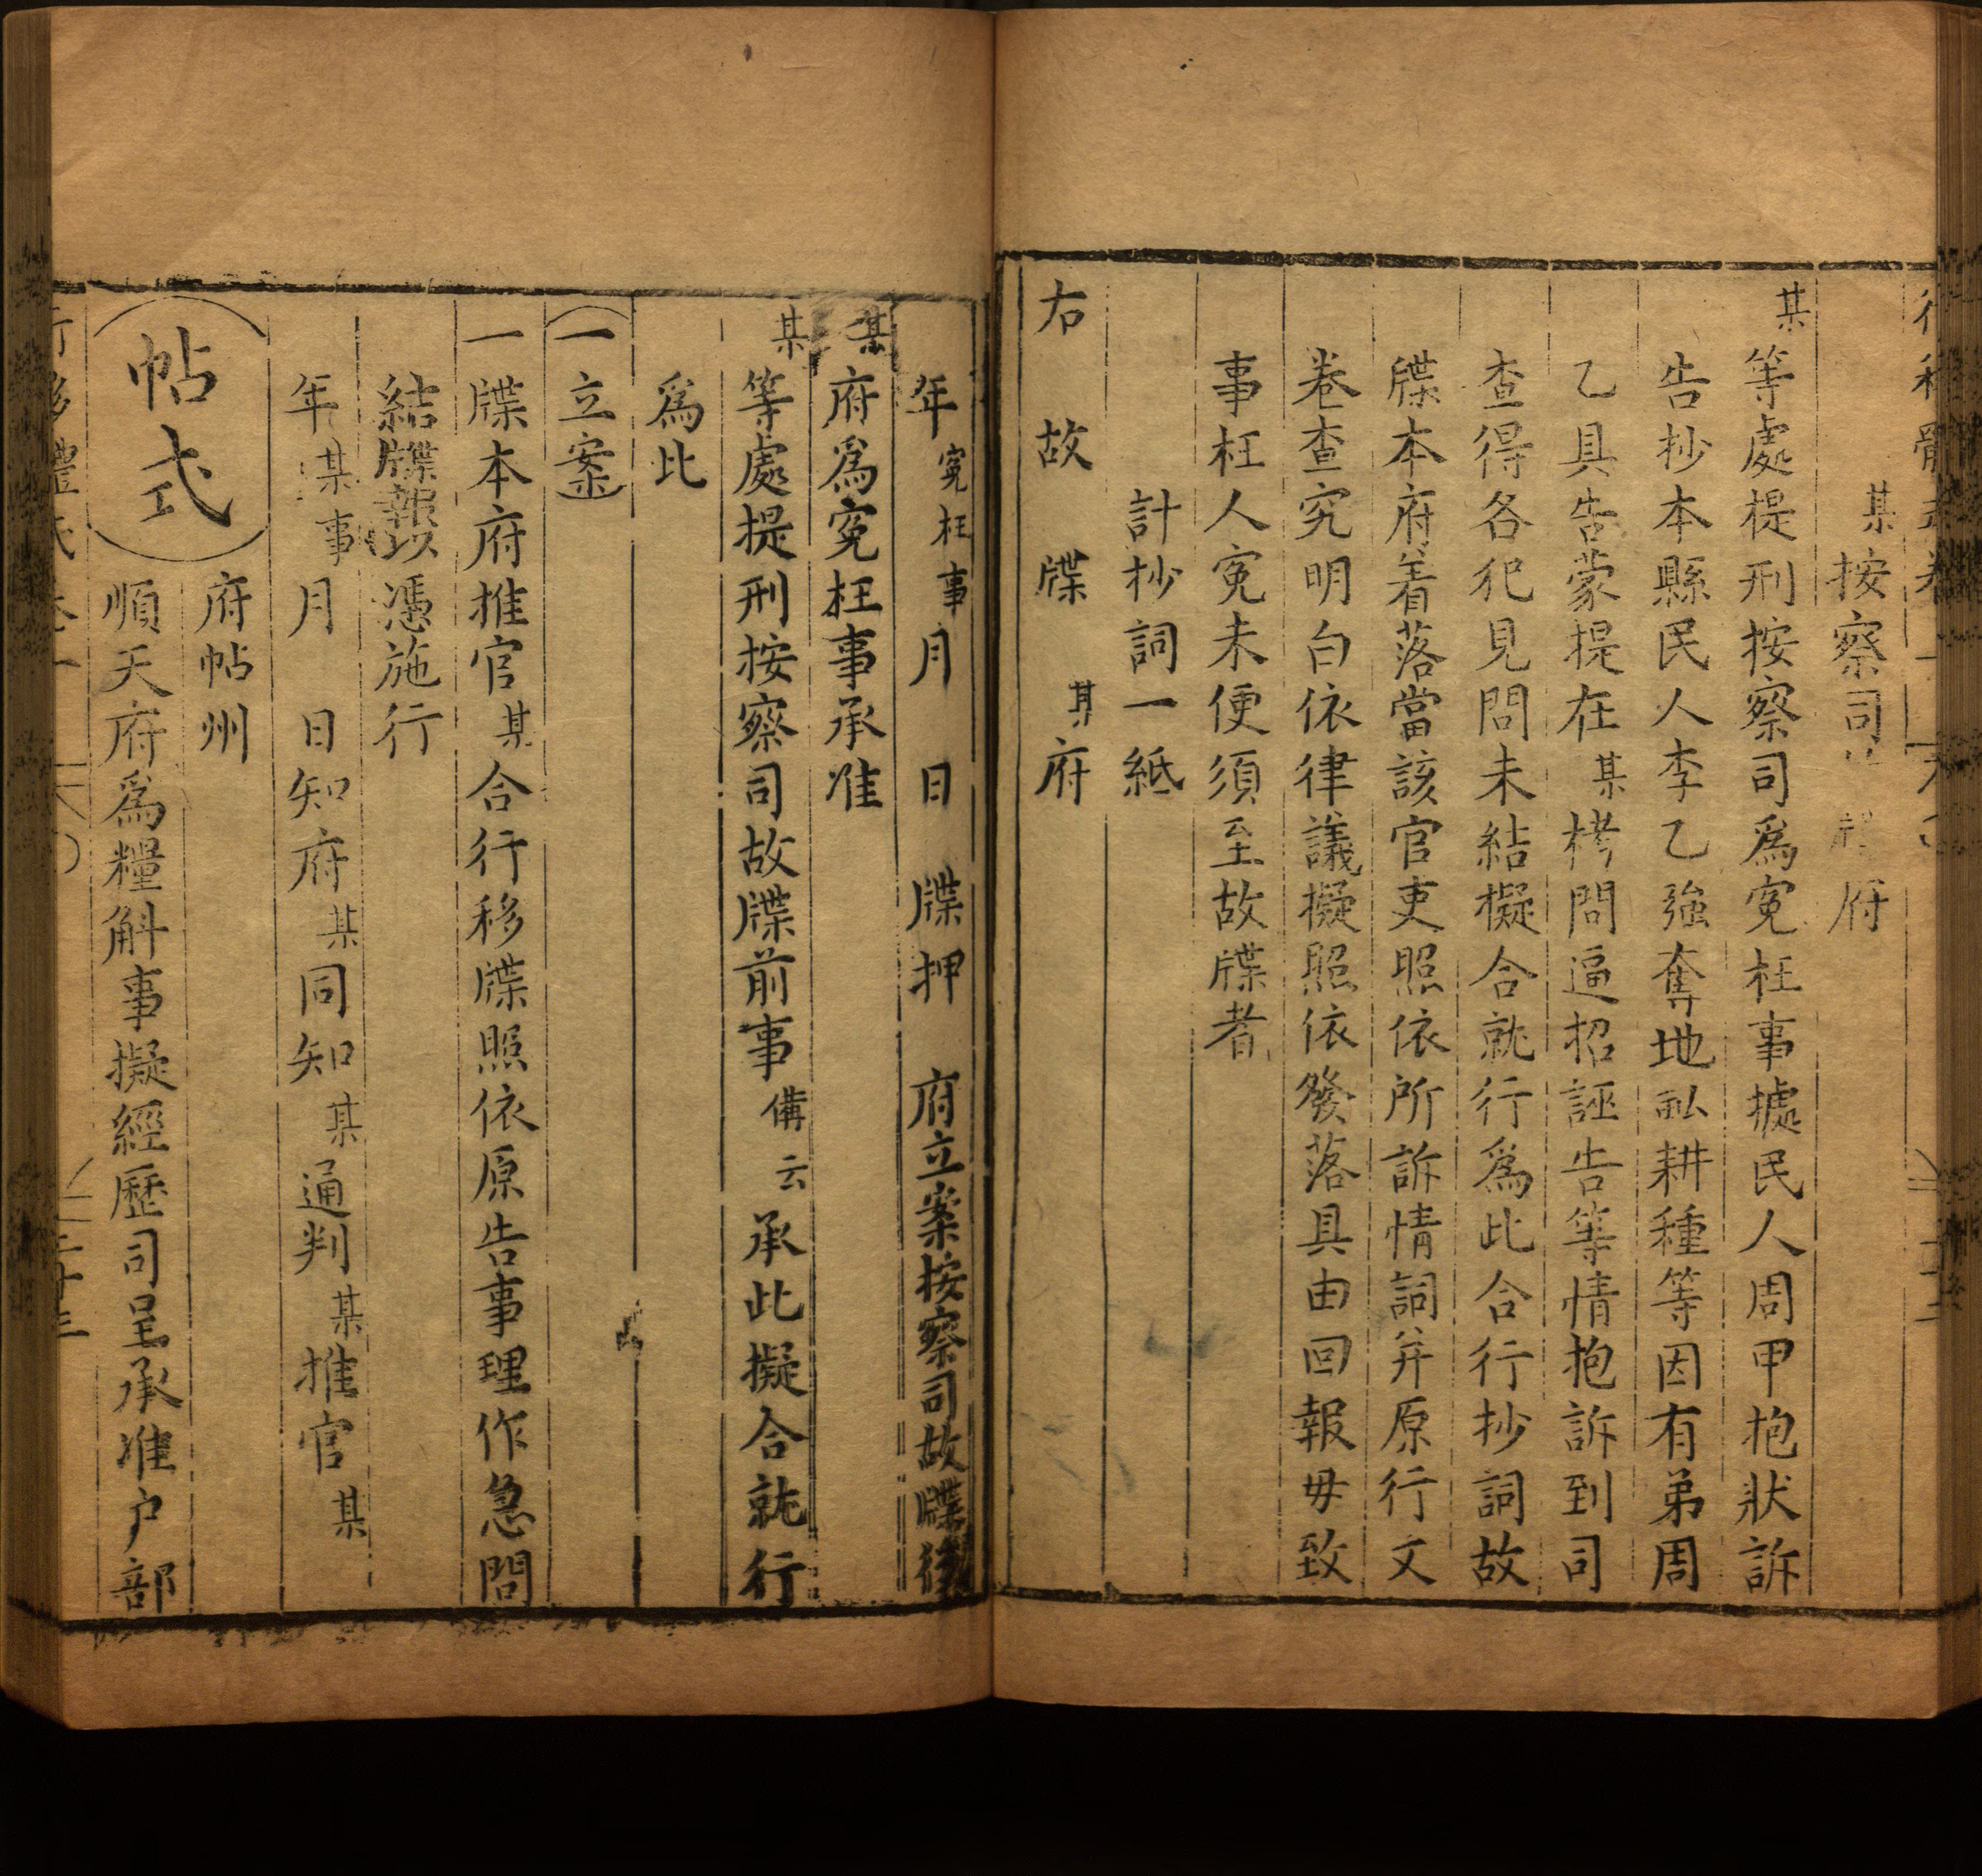 某按察司 府
某等處提刑按察司爲寃枉事據民人周甲抱狀訴
告抄本縣民人李乙強奪地私耕種等因有弟周
乙具告蒙提在某栲問逼招誣告等情抱訴到司
查得各犯見問未結擬合就行爲此合行抄詞故
牒本府着落當該官吏照依所訴情詞并原行文
卷查究明白依律議擬照依發落具由回報毋致
事枉人寃未便須至故牒者
計抄詞一紙
右故牒某府
年寃枉事月日牒押府立案按察司故牒後
某府爲寃枉事承准
某等處提刑按察司故牒前事備云承此擬合就行
爲此
一立案
一牒本府推官某合行移牒照依原告事理作急問
結牒報以憑施行
年某事月日知府某同知某通判某推官某
帖式
府帖州
順天府爲糧斛事擬經歷司呈承准户部